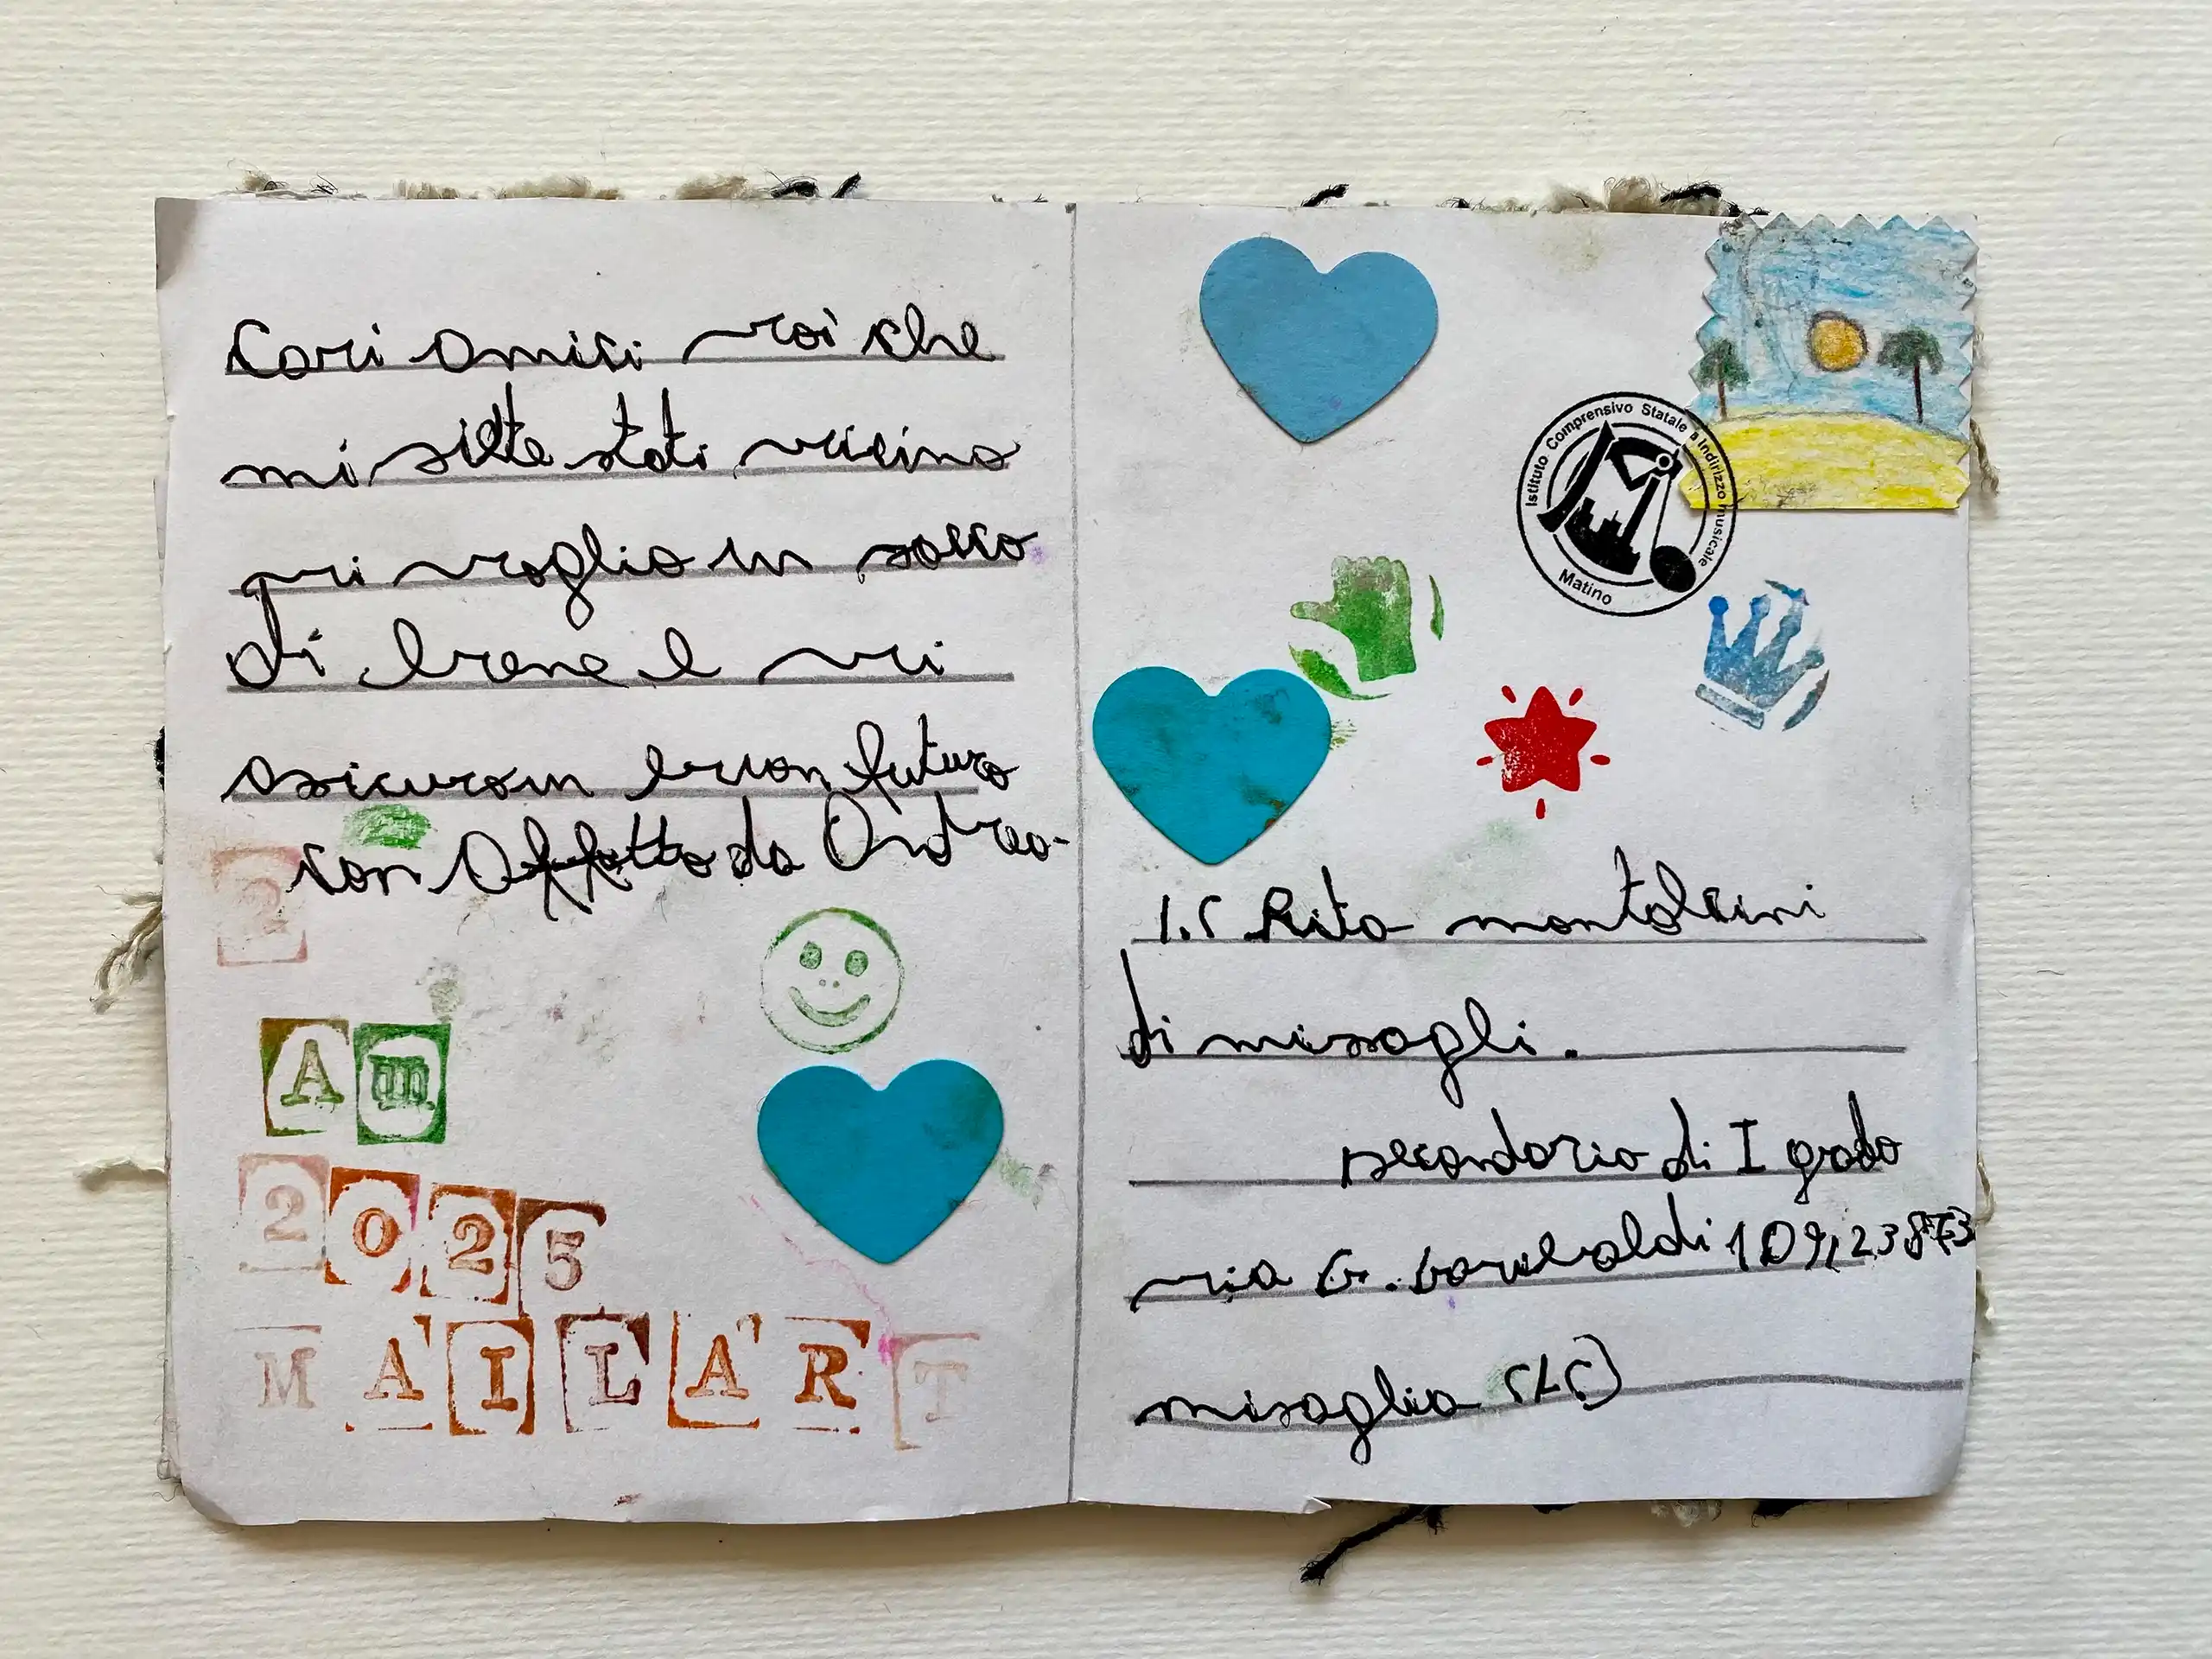 Cari amici voi che
mi siete stati vicino
vi voglio un sacco
di bene e vi
asicuro un buon futuro
con affetto da Andrea
2
Am
2025
MAILART
Istituto Comprensivo Statale a Indirizzo musicale
Matino
I.C Rita montalcini
di missagli.
secondaria di I grado
via G. Garibaldi 109, 23873
misaglia (LC)